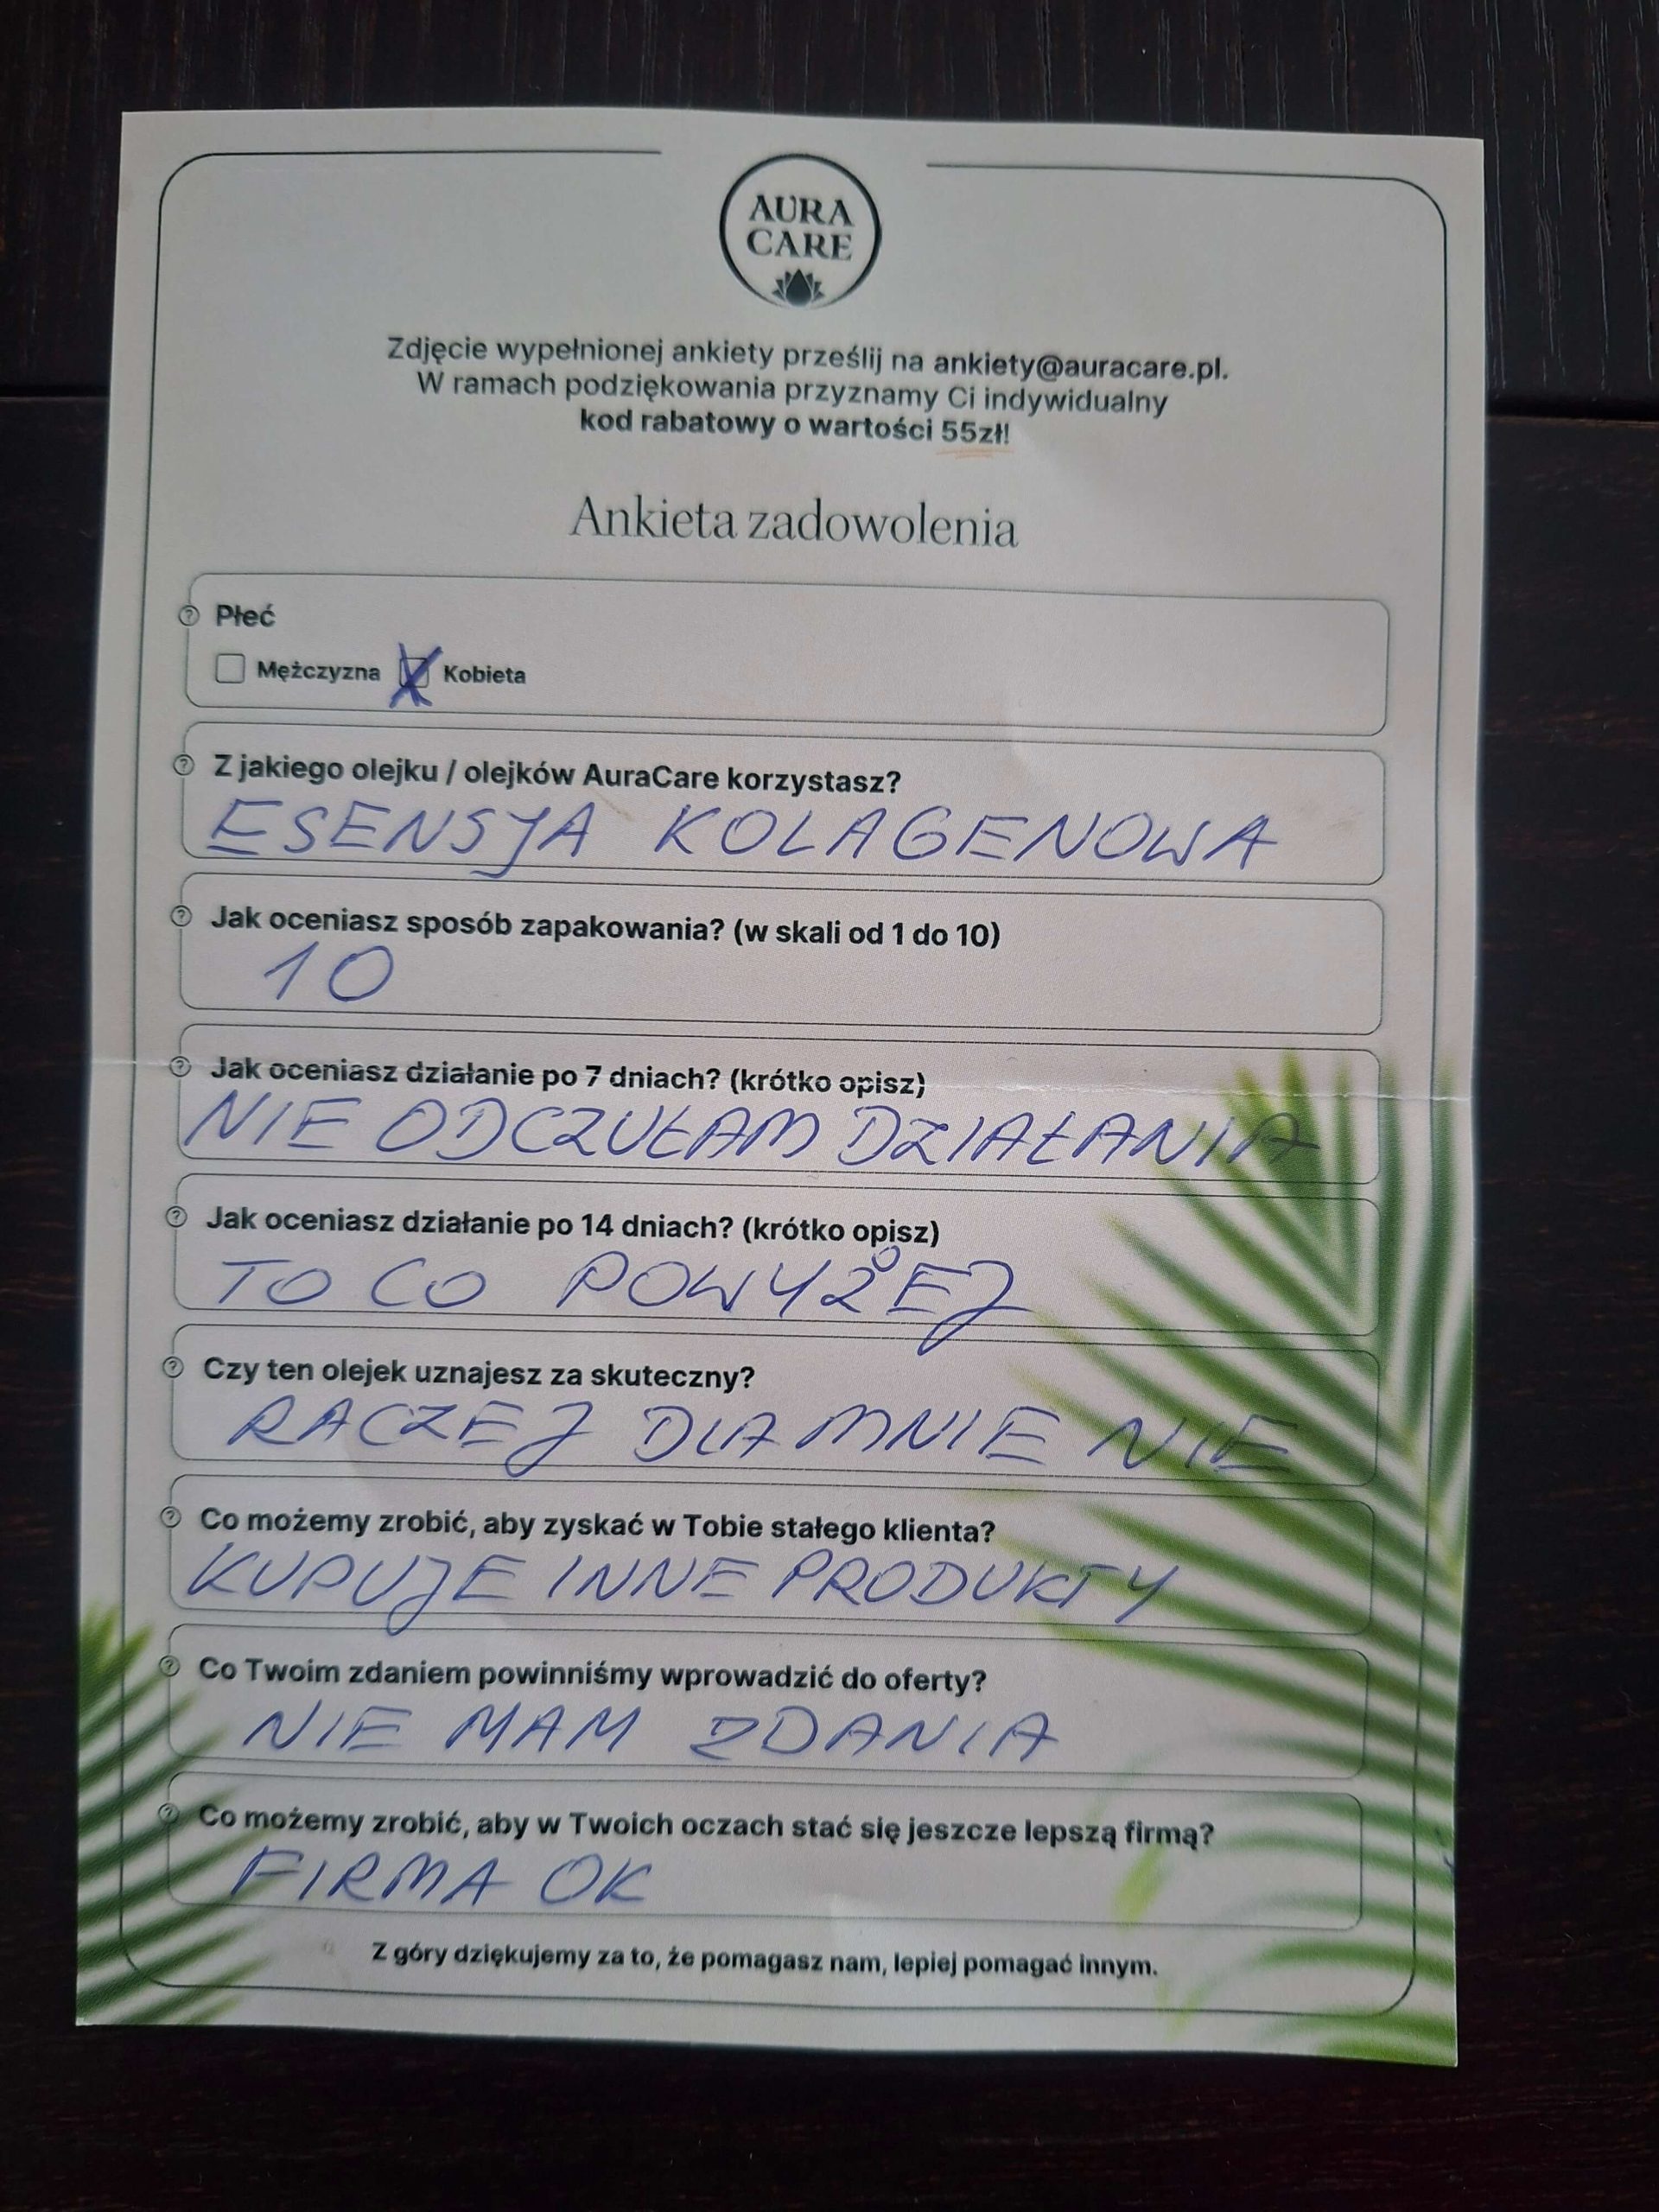 AURA
CARE
Zdjęcie wypełnionej ankiety prześlij na ankiety@auracare.pl.
W ramach podziękowania przyznamy Ci indywidualny
kod rabatowy o wartości 55zł!
Ankieta zadowolenia
Płeć
Mężczyzna X Kobieta
Z jakiego olejku / olejków AuraCare korzystasz?
ESENSJA KOLAGENOWA
Jak oceniasz sposób zapakowania? (w skali od 1 do 10)
10
Jak oceniasz działanie po 7 dniach? (krótko opisz)
NIE ODCZUŁAM DZIAŁANIA
Jak oceniasz działanie po 14 dniach? (krótko opisz)
TO CO POWYŻEJ
Czy ten olejek uznajesz za skuteczny?
RACZEJ DLA MNIE NIE
Co możemy zrobić, aby zyskać w Tobie stałego klienta?
KUPUJE INNE PRODUKTY
Co Twoim zdaniem powinniśmy wprowadzić do oferty?
NIE MAM ZDANIA
Co możemy zrobić, aby w Twoich oczach stać się jeszcze lepszą firmą?
FIRMA OK
Z góry dziękujemy za to, że pomagasz nam, lepiej pomagać innym.